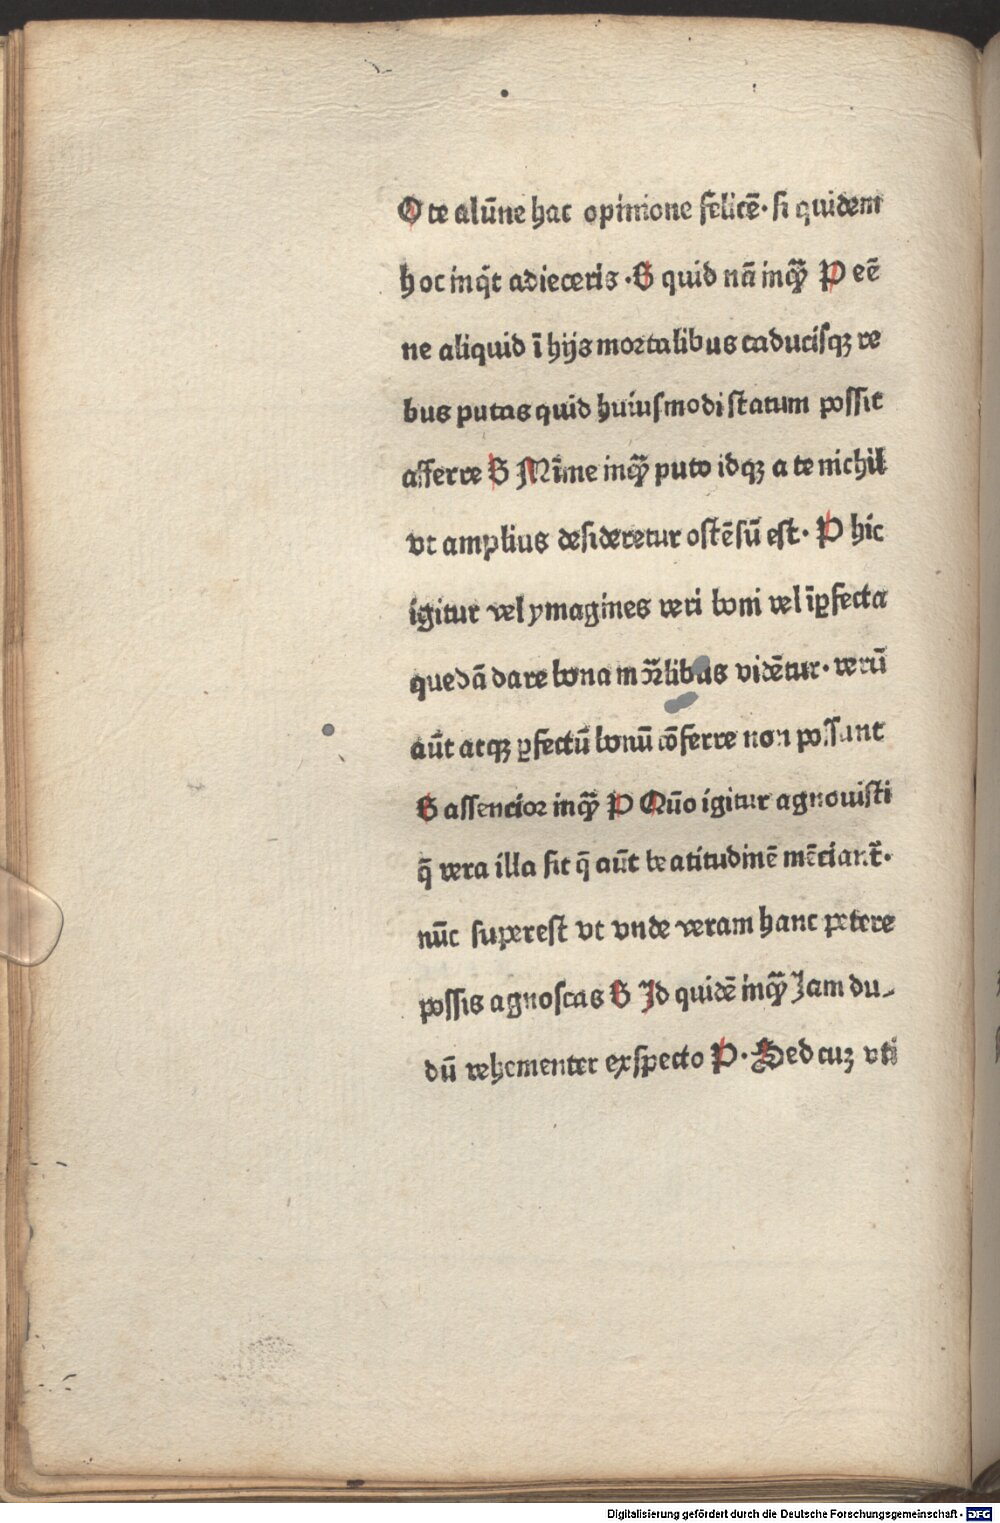 O te alūne hac opinione felicē· si quidem
hoc inq̄t adieceris ·B quid nā inqꝫ P eē
ne aliquid ī hijs mortalibus caducisqꝫ re
bus putas quid huiusmodi statum possit
afferre B Mīme inqꝫ puto idqꝫ a te nichil
vt amplius desideretur ostēsū est· P hic
igitur vel ymagines veri boni vel īꝑfecta
quedā dare bona mōrlibus vidētur· verū
aūt atqꝫ ꝑfectū bonū cōferre non possunt
B assencior inqꝫ P Quō igitur agnouisti
q̄ vera illa sit q̄ aūt beatitudinē mēciant̄·
nūc superest vt vnde veram hanc petere
possis agnoscas B Id quidē inqꝫ Jam du-
dū vehementer exspecto P· Sed cuꝫ vti
Digitalisierung gefördert durch die Deutsche Forschungsgemeinschaft · DFG